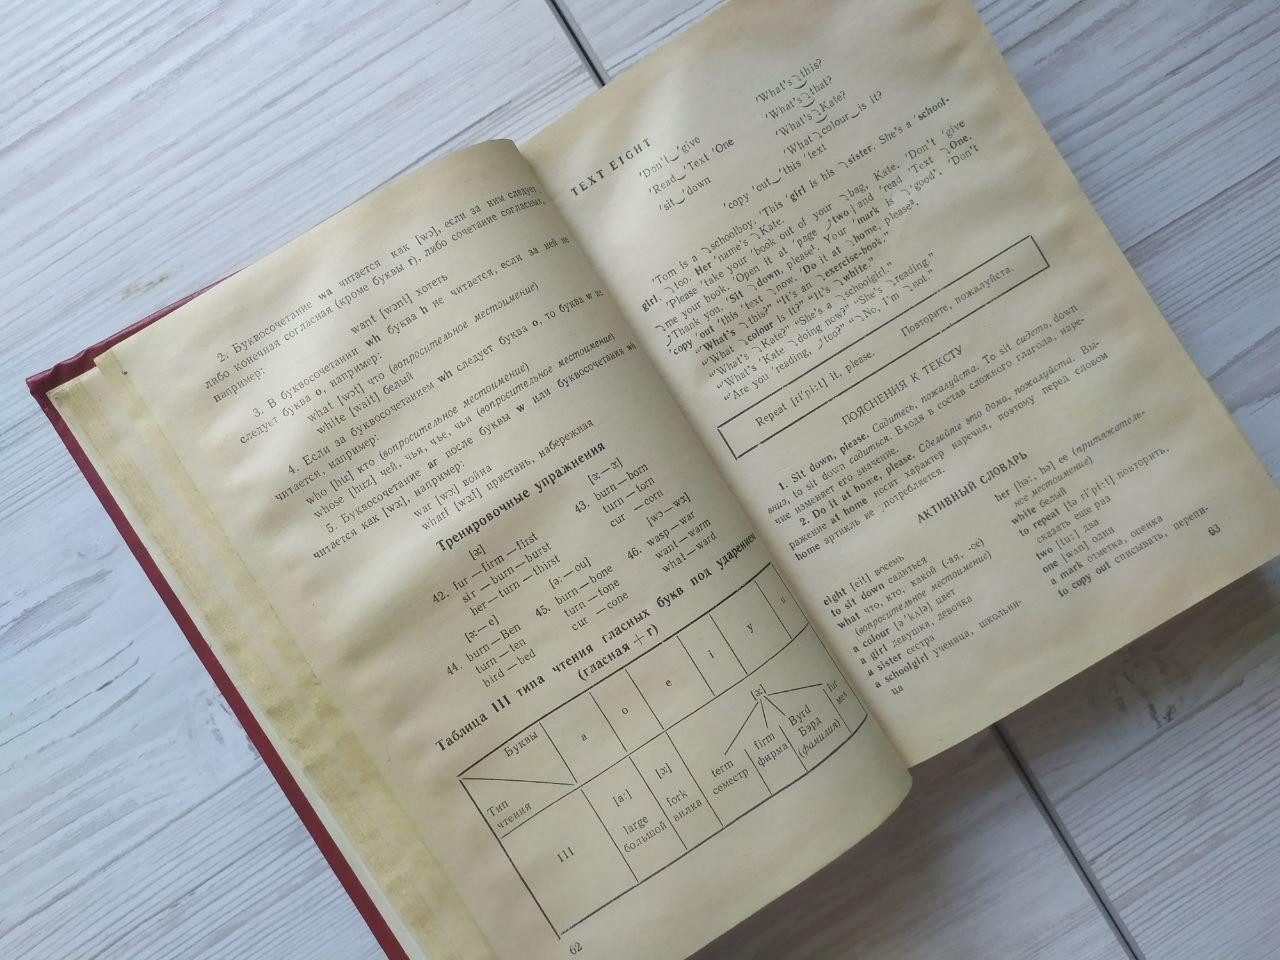 2. Буквосочетание wa читается как [wɔ], если за ним следует
либо конечная согласная (кроме буквы r), либо сочетание согласных,
например:
want [wɔnt] хотеть
3. В буквосочетании wh буква h не читается, если за ней не
следует буква o, например:
what [wɔt] что (вопросительное местоимение)
white [wait] белый
4. Если за буквосочетанием wh следует буква o, то буква w не
читается, например:
who [hu] кто (вопросительное местоимение)
whose [huz] чей, чья, чье, чьи (вопросительное местоимение)
5. Буквосочетание ar после буквы w или буквосочетания wh
читается как [wɔ], например:
war [wɔ] война
wharf [wɔf] пристань, набережная
Тренировочные упражнения
[ə:]
42. fur — firm — first
sir — burn — burst
her — turn — thirst
[ə: — ɔ:]
43. burn — born
turn — torn
cur — corn
[ə: — e]
44. burn — Ben
turn — ten
bird — bed
[ə: — ou]
45. burn — bone
turn — tone
cur — cone
[wɔ — wɔ:]
46. wasp — war
want — warm
what — ward
Таблица III типа чтения гласных букв под ударением
(гласная + r)
Буквы a o e i y u
Тип
чтения
III
[a:] [ɔ:] [ə:]
large fork term firm Byrd fur
большой вилка семестр фирма Бэрд мех
(фамилия)
62
TEXT EIGHT
'Don't 'give
'Read 'Text 'One
'sit 'down
'What's this?
'What's that?
'What's Kate?
'What colour is it?
'copy 'out 'this 'text
'Tom is a schoolboy. 'This 'girl is his sister. She's a 'school-
girl, too. Her 'name's Kate.
'Please 'take your 'book out of your bag, Kate. 'Don't 'give
me your book. 'Open it at 'page two | and 'read 'Text One.
'Thank you. 'Sit down, please¹. Your 'mark is 'good'. 'Don't
'copy 'out 'this 'text now. 'Do it at home, please².
“'What's this?” “It's an exercise-book.”
“'What colour is it?” “It's white.”
“'What's Kate?” “She's a schoolgirl.”
“'What's 'Kate doing now?” “She's reading.”
“'Are you 'reading, too?” “No, I'm not.”
Repeat [rɪ'pi:t] it, please. Повторите, пожалуйста.
ПОЯСНЕНИЯ К ТЕКСТУ
1. Sit down, please. Садитесь, пожалуйста. To sit сидеть, down
вниз, to sit down садиться. Входя в состав сложного глагола, наре-
чие изменяет его значение.
2. Do it at home, please. Сделайте это дома, пожалуйста. Вы-
ражение at home носит характер наречия, поэтому перед словом
home артикль не употребляется.
АКТИВНЫЙ СЛОВАРЬ
eight [eit] восемь
to sit down садиться
what что, кто, какой (-ая, -ое)
(вопросительное местоимение)
a colour [ə 'kʌlə] цвет
a girl девушка, девочка
a sister сестра
a schoolgirl ученица, школьни-
ца
her [hə:, hə] ее (притяжатель-
ное местоимение)
white белый
to repeat [tə rɪ'pi:t] повторить,
сказать еще раз
two [tu:] два
one [wʌn] один
a mark отметка, оценка
to copy out списывать, перепи-
63